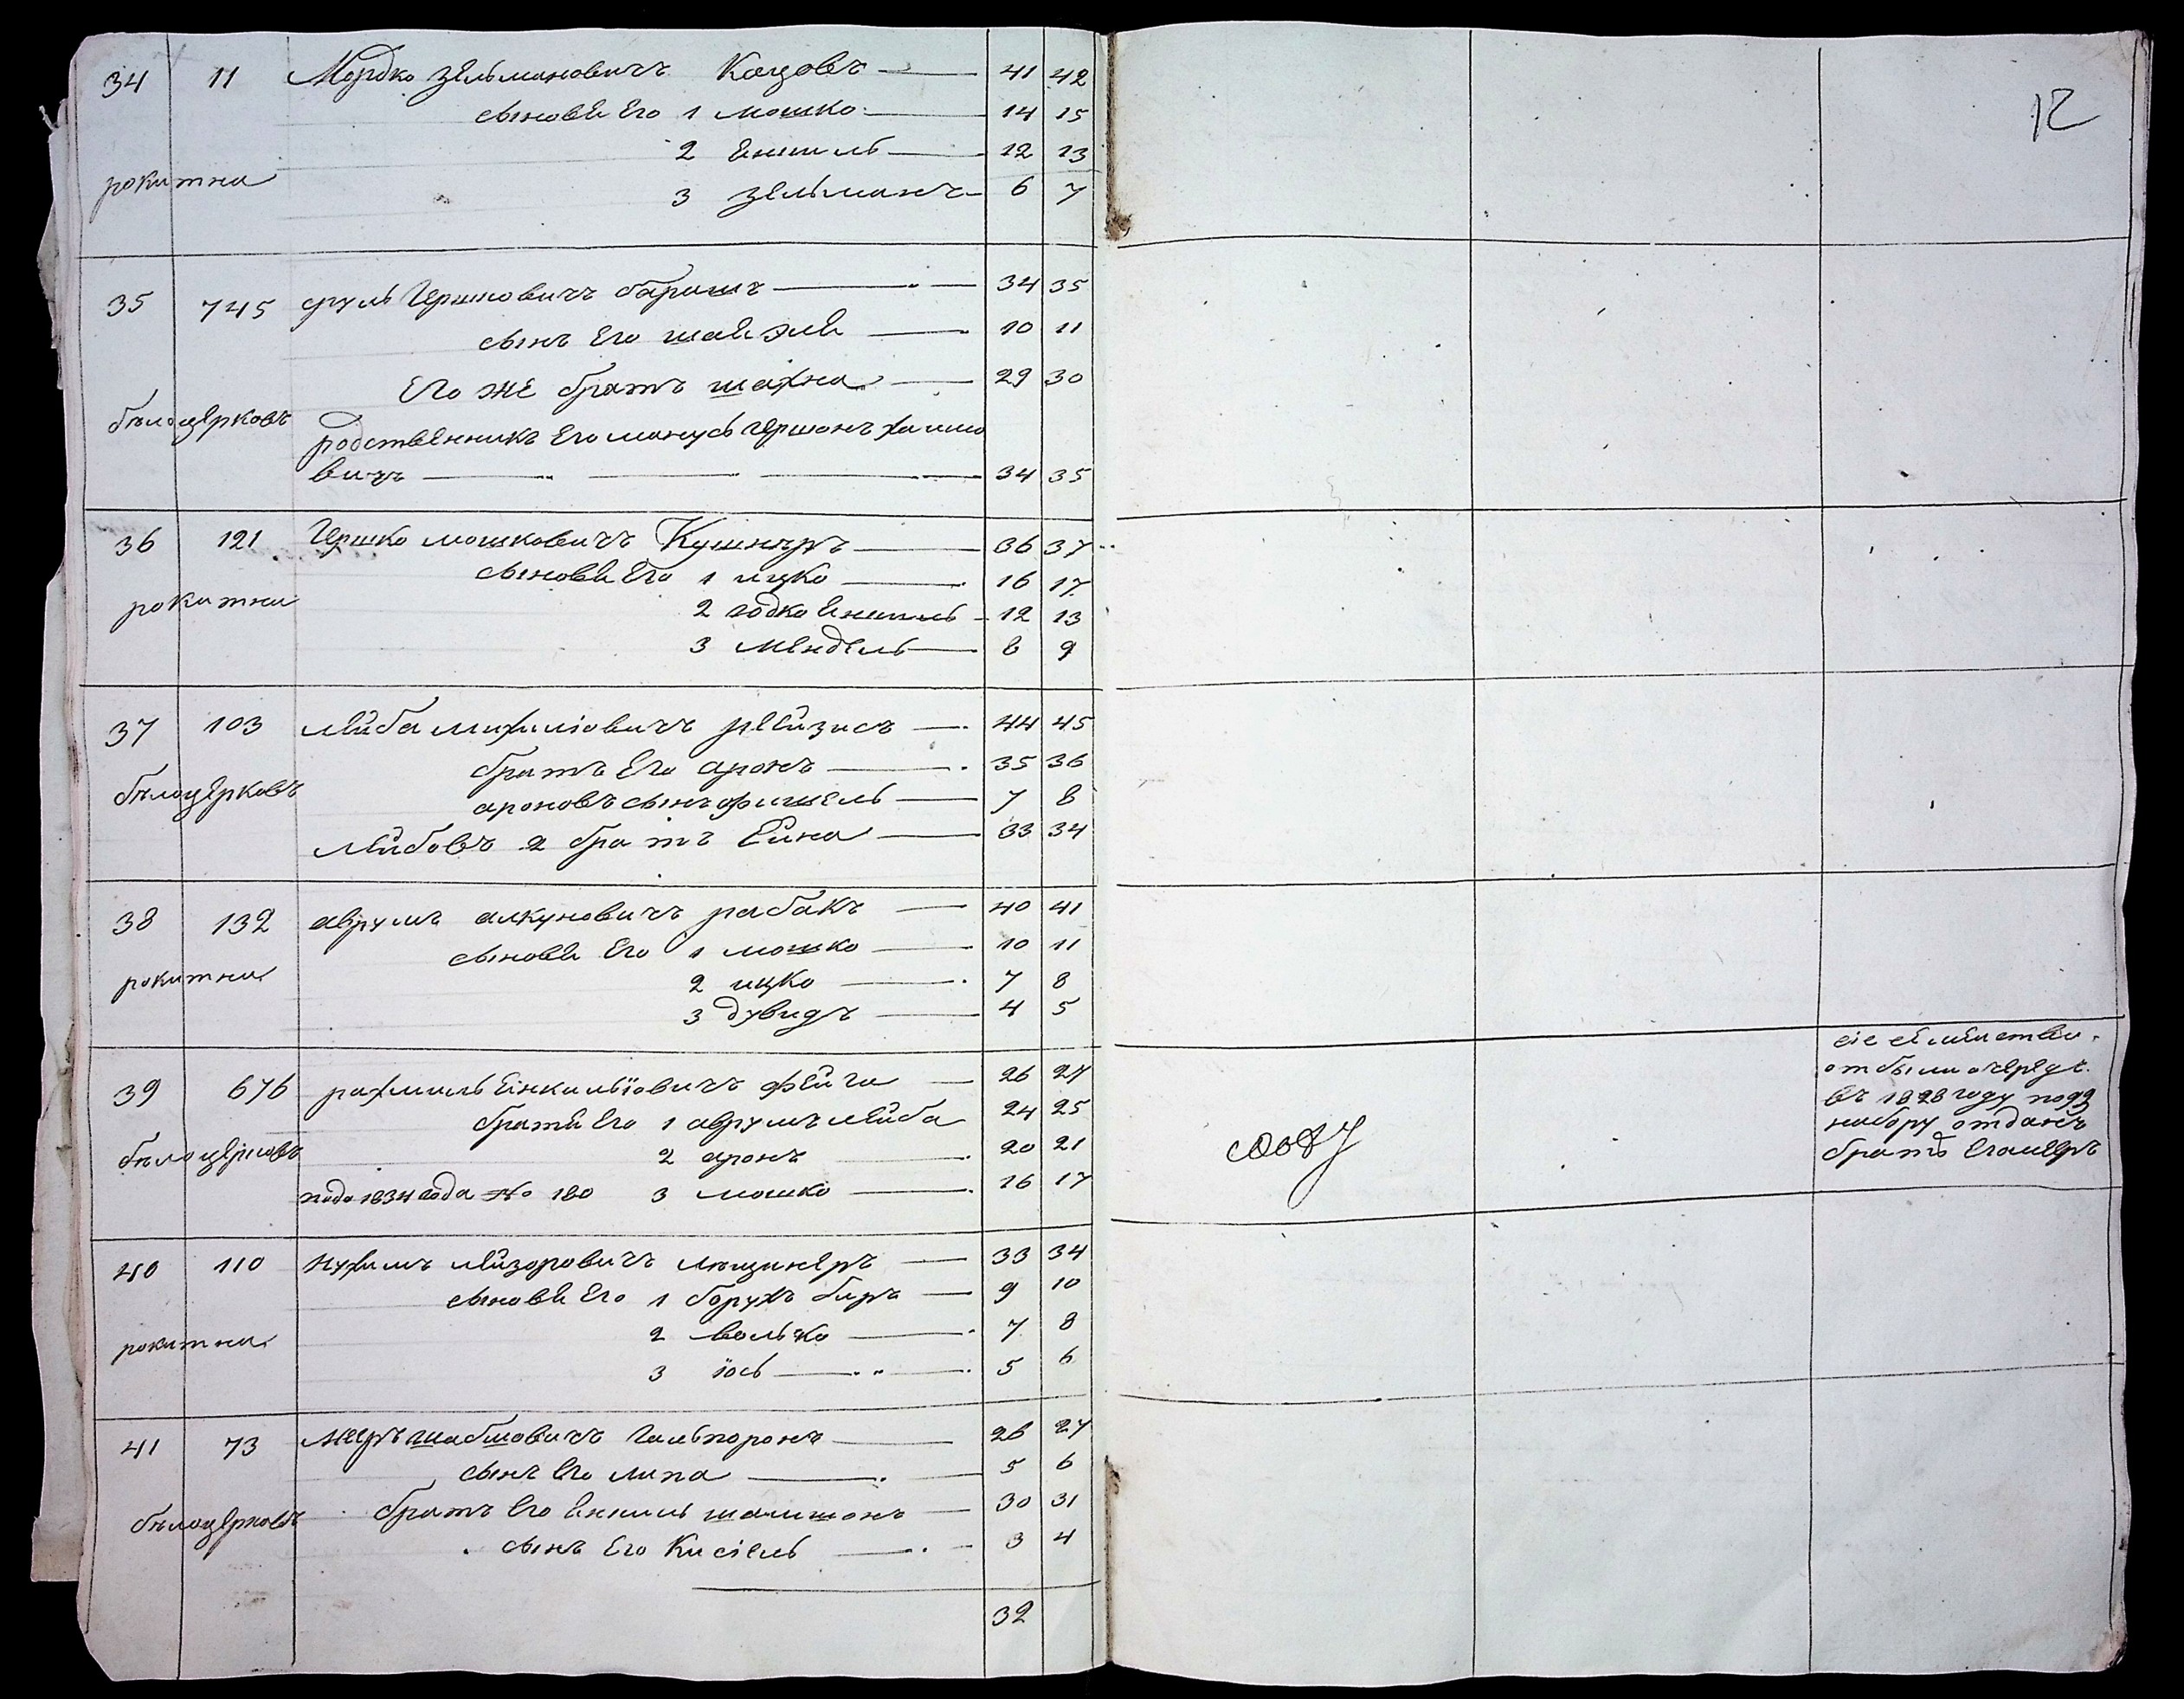 12
34 11 Мордко Зельмановичъ Кацовъ — 41 42
сыновѣ Его 1 мошко — 14 15
2 Енкель — 12 13
рокитна
3 Зельманъ — 6 7
35 745 сруль Гершковичъ барашъ — 34 35
сынъ Его
Его же братъ шахна — 29 30
бѣлоцерковъ
родственникъ Его Гершонъ хаимо
вичъ — 34 35
36 121 Гершко мошковичъ Кушнеръ — 36 37
сыновѣ Его 1 ицко — 16 17
рокитна
2 Енкель — 12 13
3 мендель — 8 9
37 103 лейба михиліовичъ рейзисъ — 44 45
братъ Его аронъ — 35 36
бѣлоцерковъ
ароновъ сынъ фишель — 7 8
лейбовъ 2 братъ Ейна — 33 34
38 132 аврумъ алкуновичъ рабакъ — 40 41
сыновѣ Его 1 мошко — 10 11
рокитна
2 ицко — 7 8
3 дувидъ — 4 5
39 676 рахмиль Енкильіовичъ фейга — 26 27
братѣ Его 1 аврумъ лейба 24 25
бѣлоцерковъ
2 аронъ — 20 21
1834 года № 180 3 мошко — 16 17
сіе семѣйство
отбыли очередь
въ 1828 году подъ
набору отданъ
братъ Его меръ
40 110 нухимъ лейзоровичъ — 33 34
сыновѣ Его 1 борухъ беръ — 9 10
рокитна
2 волько — 7 8
3 іось — 5 6
41 73 мееръ шабшовичъ гальпоронъ — 26 27
сынъ Его липа — 5 6
бѣлоцерковъ
братъ Его Енкель шлимонъ — 30 31
сынъ Его Кисіель — 3 4
32